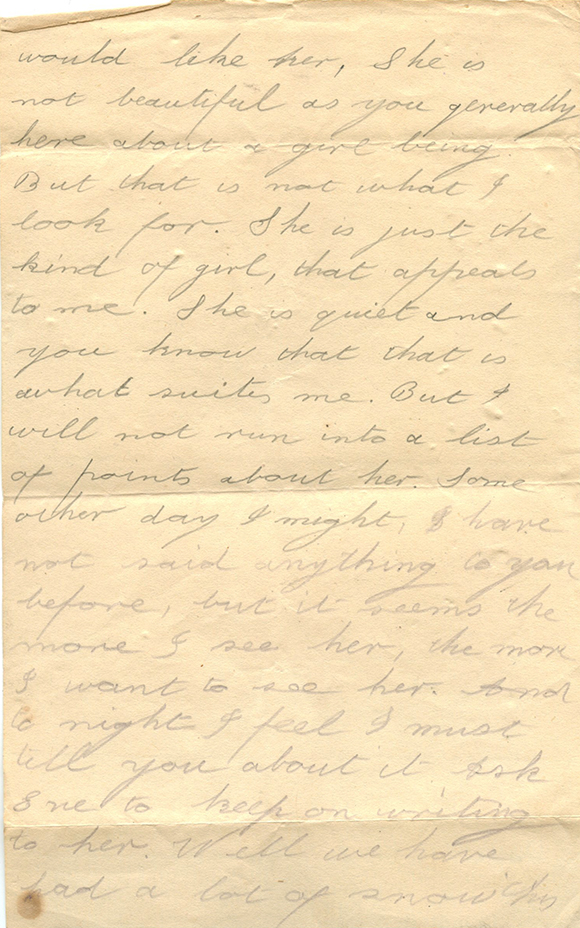 would like her, She is
not beautiful as you generally
here about a girl being.
But that is not what I
look for. She is just the
kind of girl, that appeals
to me. She is quiet and
you know that that is
what suites me. But I
will not run into a list
of points about her. Some
other day I might, I have
not said anything to you
before, but it seems the
more I see her, the more
I want to see her. And
to night I feel I must
tell you about it Ask
to keep on writing
to her. Well we have
had a lot of snow this